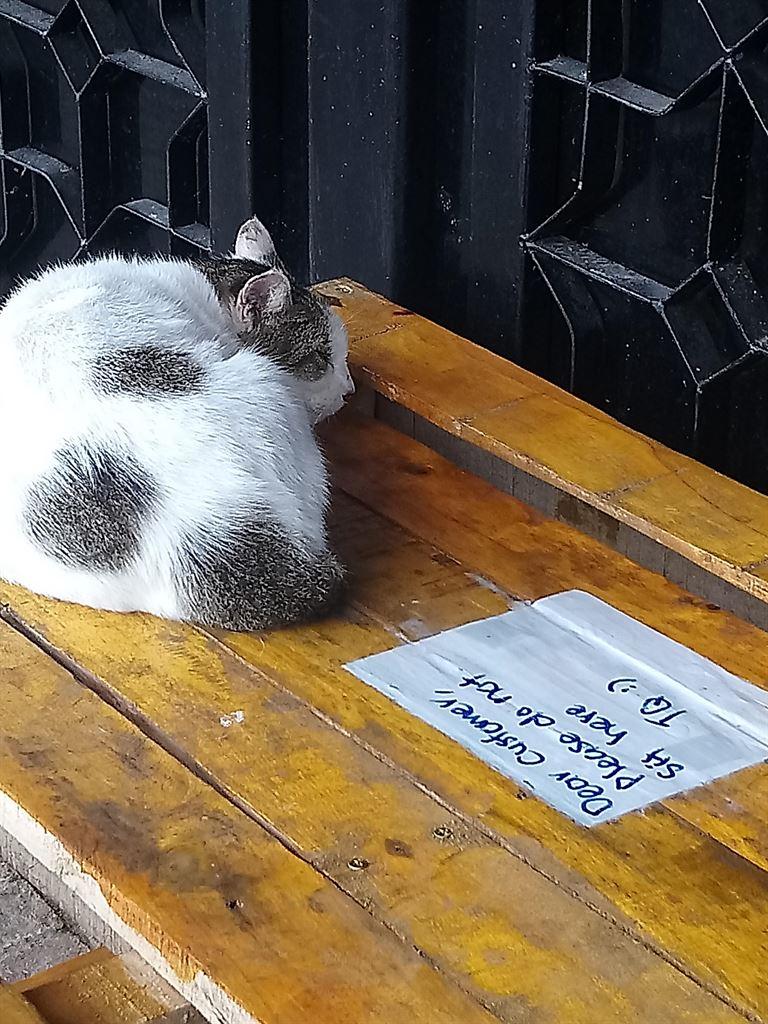 Dear Customer,
Please do not
sit here
TQ :)